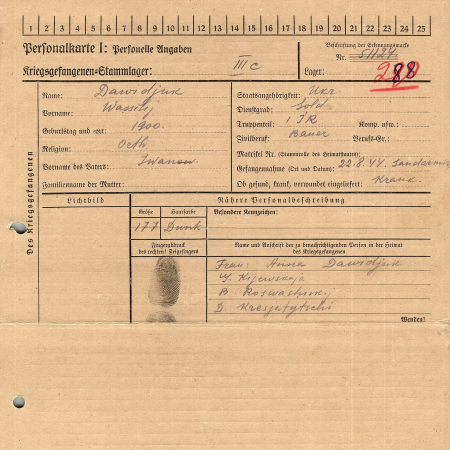 1 2 3 4 5 6 7 8 9 10 11 12 13 14 15 16 17 18 19 20 21 22 23 24 25
Personalkarte I: Personelle Angaben
Beschriftung der Erkennungsmarke
Nr. 51124
Kriegsgefangenen-Stammlager: III C
Lager: 288
Des Kriegsgefangenen
Name: Dawidjuk
Vorname: Wassilij
Geburtstag und -ort: 1900
Religion: Orth
Vorname des Vaters: Iwanow
Familienname der Mutter:
Staatsangehörigkeit: Ukr
Dienstgrad: Sold
Truppenteil: 1 JR Komp. usw.:
Zivilberuf: Bauer Berufs-Gr.:
Matrikel Nr. (Stammrolle des Heimatstaates):
Gefangennahme (Ort und Datum): 22.8.44
Ob gesund, krank, verwundet eingeliefert: Krank
Lichtbild
Nähere Personalbeschreibung
Größe Haarfarbe Besondere Kennzeichen:
177 Dunk
Fingerabdruck
des rechten! Zeigefingers
Name und Anschrift der zu benachrichtigenden Person in der Heimat
des Kriegsgefangenen
Frau: Anna Dawidjuk
Wenden!